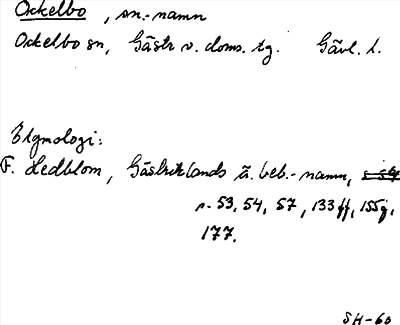 Ockelbo, sn.-namn
Ockelbo sn, Gästr v. doms. tg. Gävl. l.
Etymologi:
F. Hedblom, Gästriklands ä. beb.-namn,
s. 53, 54, 57, 133 ff, 155 f,
177.
SH-60